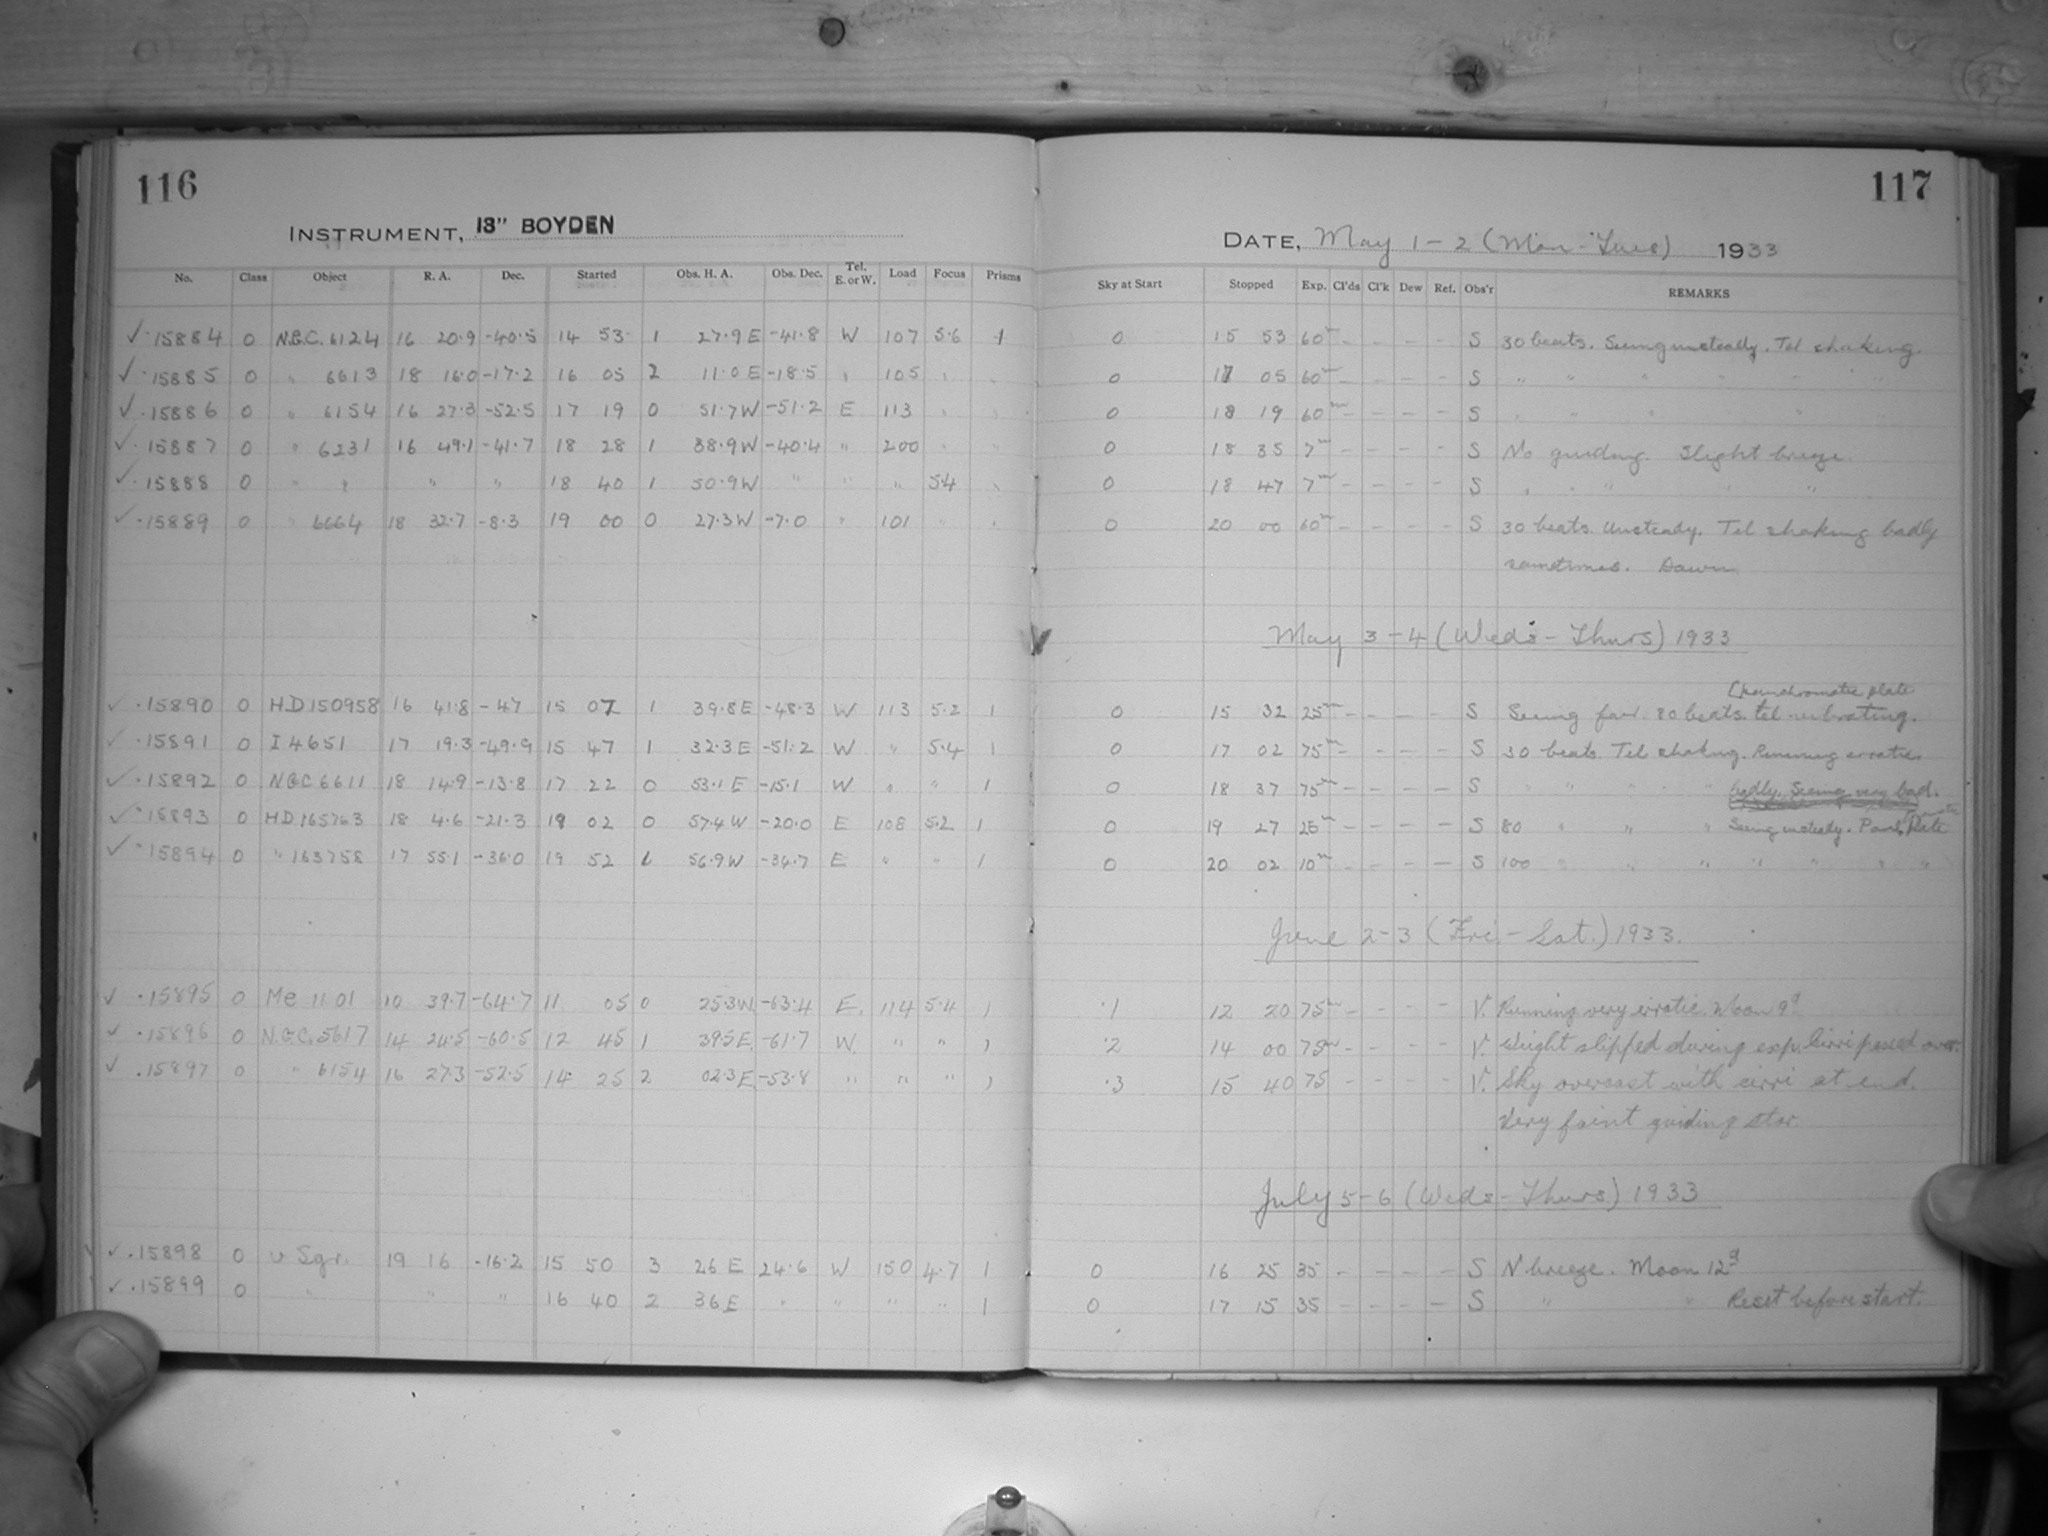 116
INSTRUMENT, 13" BOYDEN
No. Class Object R. A. Dec. Started Obs. H. A. Obs. Dec. Tel. E. or W. Load Focus Prisms
✓ ·15884 0 N.G.C. 6124 16 20·9 -40·5 14 53 1 27·9 E -41·8 W 107 5·6 1
✓ ·15885 0 " 6613 18 16·0 -17·2 16 05 2 11·0 E -18·5 " 105 " "
✓ ·15886 0 " 6154 16 27·3 -52·5 17 19 0 51·7 W -51·2 E 113 " "
✓ ·15887 0 " 6231 16 49·1 -41·7 18 28 1 38·9 W -40·4 " 200 " "
✓ ·15888 0 " " " " 18 40 1 50·9 W " " " 5·4 "
✓ ·15889 0 " 6664 18 32·7 -8·3 19 00 0 27·3 W -7·0 " 101 " "
✓ ·15890 0 HD 150958 16 41·8 -47 15 07 1 39·8 E -48·3 W 113 5·2 1
✓ ·15891 0 I 4651 17 19·3 -49·9 15 47 1 32·3 E -51·2 W " 5·4 1
✓ ·15892 0 NGC 6611 18 14·9 -13·8 17 22 0 53·1 E -15·1 W " " 1
✓ ·15893 0 HD 165763 18 4·6 -21·3 19 02 0 57·4 W -20·0 E 108 5·2 1
✓ ·15894 0 " 163758 17 55·1 -36·0 19 52 1 56·9 W -34·7 E " " 1
✓ ·15895 0 Me 11 01 10 39·7 -64·7 11 05 0 25·3 W -63·4 E. 114 5·4 1
✓ ·15896 0 N.G.C. 5617 14 24·5 -60·5 12 45 1 39·5 E. -61·7 W. " " 1
✓ ·15897 0 " 6154 16 27·3 -52·5 14 25 2 02·3 E. -53·8 " " " 1
✓ ·15898 0 υ Sgr. 19 16 -16·2 15 50 3 26 E 24·6 W 150 4·7 1
✓ ·15899 0 " " " 16 40 2 36 E " " " " 1
117
DATE, May 1 - 2 (Mon - Tues) 1933
Sky at Start Stopped Exp. Cl'ds Cl'k Dew Ref. Obs'r REMARKS
0 15 53 60m - - - - S 30 beats. Seeing unsteady. Tel shaking.
0 17 05 60m - - - - S " " " " " "
0 18 19 60m - - - - S " " " "
0 18 35 7m - - - - S No guiding. Slight breeze.
0 18 47 7m - - - - S " " " " "
0 20 00 60m - - - - S 30 beats. Unsteady. Tel shaking badly
sometimes. Dawn
May 3 - 4 (Weds - Thurs) 1933
(Panchromatic plate
0 15 32 25m - - - - S Seeing fair. 80 beats. tel vibrating.
0 17 02 75m - - - - S 30 beats. Tel shaking. Running erratic
0 18 37 75m - - - - S " " " " badly. Seeing very bad.
0 19 27 25m - - - - S 80 " " " Seeing unsteady. Plate
0 20 02 10m - - - - S 100 " " " " " " "
June 2-3 (Fri. - Sat.) 1933.
·1 12 20 75m - - - - V. Running very erratic. Moon 9d
·2 14 00 75m - - - - V. Weight slipped during exp. Cirri passed over.
·3 15 40 75 - - - - V. Sky overcast with cirri at end.
Very faint guiding star.
July 5-6 (Weds - Thurs) 1933
0 16 25 35 - - - - S N breeze. Moon 12d
0 17 15 35 - - - - S " " Reset before start.